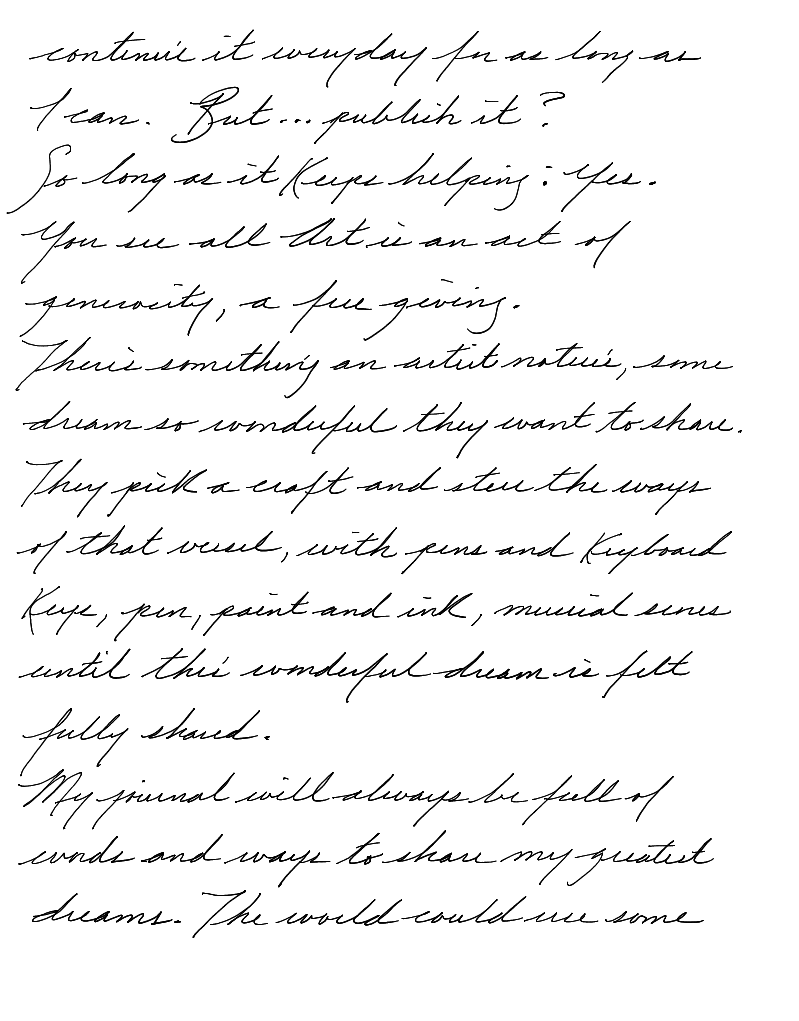 continue it everyday for as long as
I can. But... publish it?
So long as it Keeps helping: Yes.
You see all Art is an act of
generosity, a free giving.
There's something an artist notices, some
dream so wonderful they want to share.
They pick a craft and steer the ways
of that vessel, with pens and Keyboard
Keys, pen, paint and ink, musical
until this wonderful dream is felt
fully shared.
My journal will always be full of
words and ways to share my greatest
dreams. The world could use some